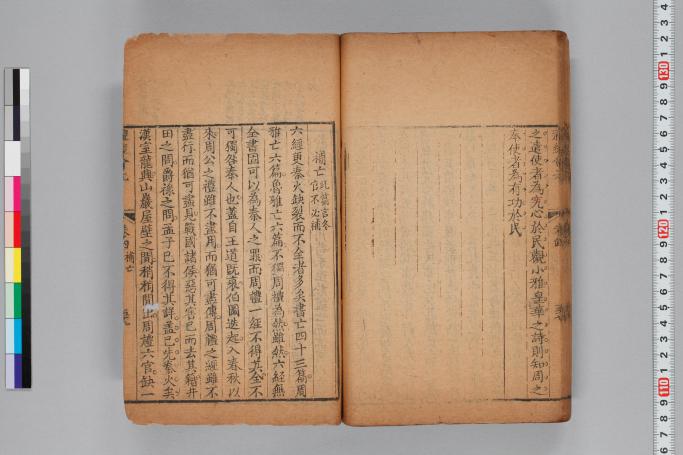 之遠使者為究心於民觀小雅皇華之詩則知周之
奉使者為有功於民
補亡 此篇言冬官不必補
六經更秦火缺裂而不全者多矣書亡四十三篇周
雅亡六篇魯雅亡六篇不獨周禮為然雖然六經無
全書固可以為秦人之罪而周禮一經不得其全不
可獨咎秦人也蓋自王道既衰伯圖迭起入春秋以
來周公之禮雖不盡用而猶可盡傳周禮之經雖不
盡行而猶可盡見戰國諸侯惡其害己而去其籍井
田之間爵祿之問孟子已不得其詳蓋已先秦火矣
漢室龍興山巖屋壁之間稍稍間出周禮六官缺一
卷四 補亡
130
120
110